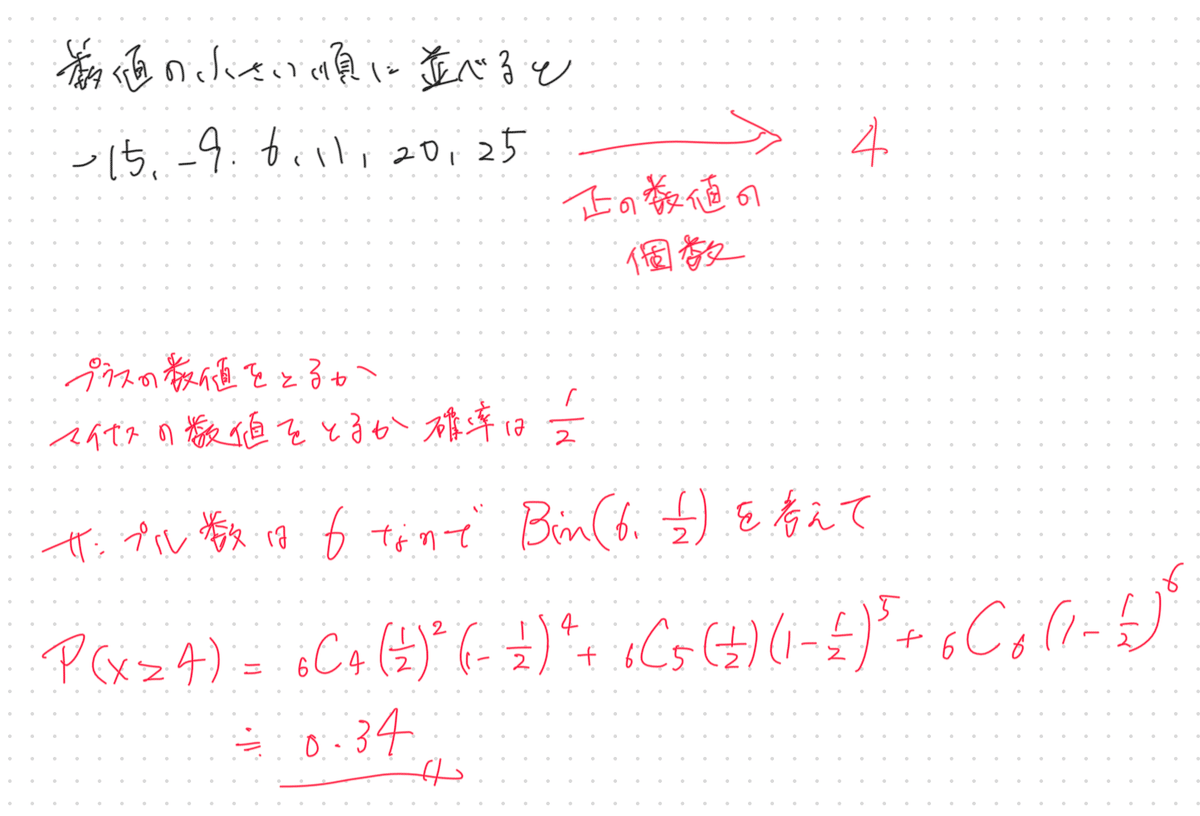 数値の小さい順に並べると
-15, -9, 6, 11, 20, 25
4
正の数値の
個数
プラスの数値をとるか
マイナスの数値をとるか 確率は 1/2
サンプル数は 6 なので Bin(6, 1/2) を考えて
P(x≥4) = ₆C₄(1/2)²(1-1/2)⁴ + ₆C₅(1/2)(1-1/2)⁵ + ₆C₆(1-1/2)⁶
≒ 0.34